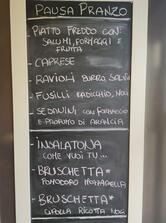 PAUSA PRANZO
- PIATTO FREDDO CON:
SALUMI, FORMAGGI E
FRUTTA
- CAPRESE
- RAVIOLI BURRO SALVIA
- FUSILLI RADICCHIO, NOCI
- SEDANINI CON FORMAGGIO
E PROFUMO DI ARANCIA
- INSALATONA
COME VUOI TU...
- BRUSCHETTA*
POMODORO MOZZARELLA
- BRUSCHETTA*
CIPOLLA RICOTTA NOCI